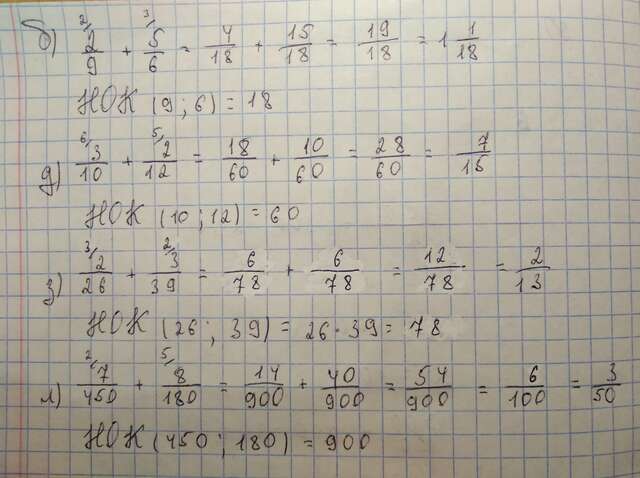 б) ²/2/9 + ³/5/6 = 4/18 + 15/18 = 19/18 = 1 1/18
НОК (9 ; 6) = 18
д) ⁶/3/10 + ⁵/2/12 = 18/60 + 10/60 = 28/60 = 7/15
НОК (10 ; 12) = 60
з) ³/2/26 + ²/3/39 = 6/78 + 6/78 = 12/78 = 2/13
НОК (26 ; 39) = 26 · 39 = 78
л) ²/7/450 + ⁵/8/180 = 14/900 + 40/900 = 54/900 = 6/100 = 3/50
НОК (450 ; 180) = 900